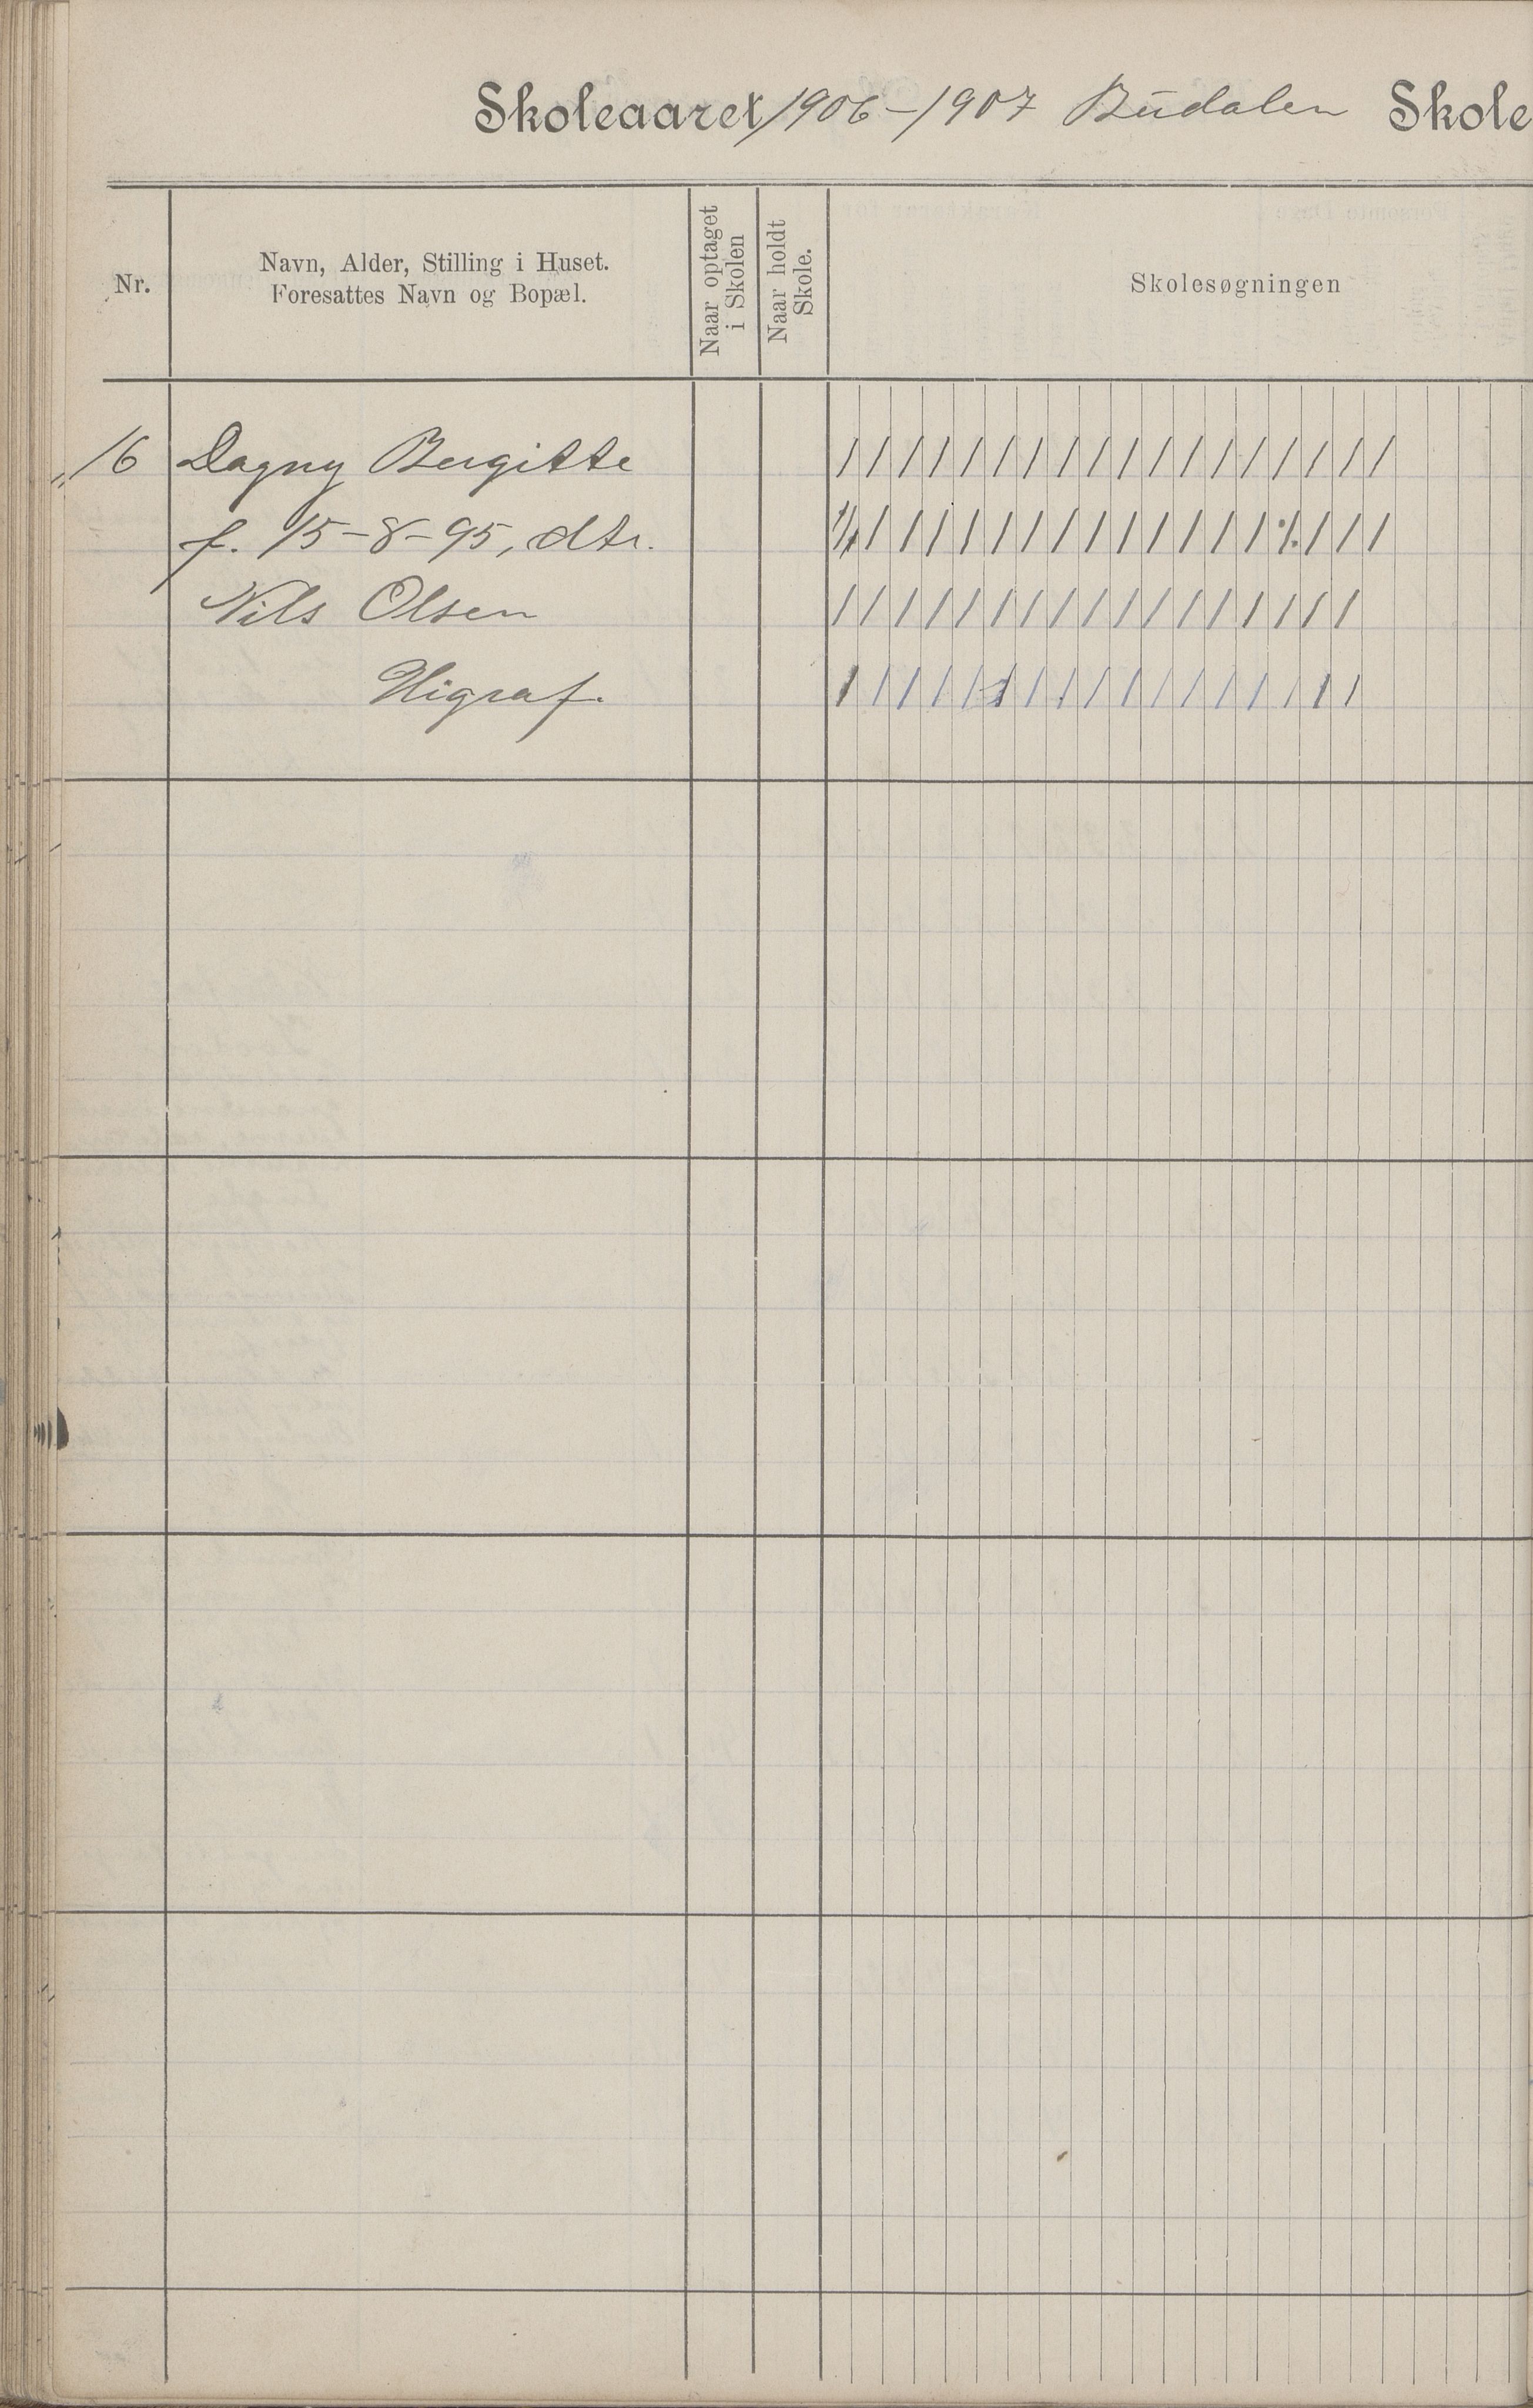 Skoleaaret 1906-1907 Budalen Skole
Nr.
Navn, Alder, Stilling i Huset.
Foresattes Navn og Bopæl.
Naar optaget
i Skolen
Naar holdt
Skole.
Skolesøgningen
16 Dagny Bergitte / / / / / / / / / / / / / / / / / /
f. 15-8-95, dtr.
Nils Olsen / / / / / / / / / / / / / / / / /